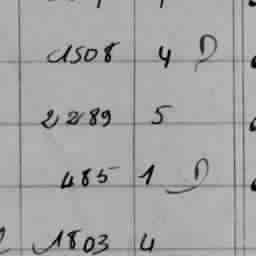 1508 4 D
2289 5
485 1 D
1803 4